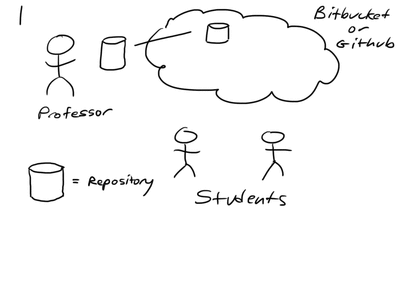 1
Bitbucket
or
Github
Professor
= Repository
Students